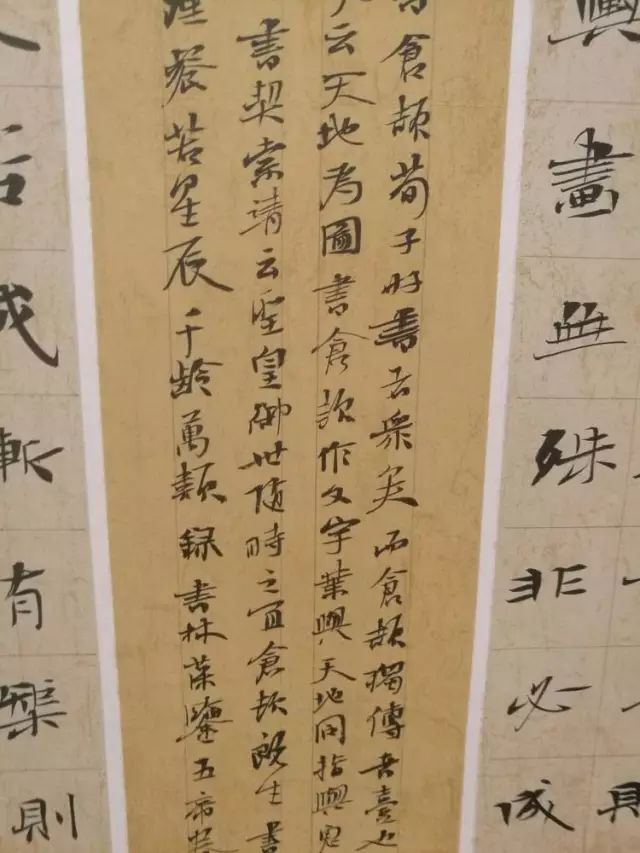 畫無殊非必成
倉頡荀子好書者眾矣而倉頡獨傳者壹也
云天地為圖書倉頡作文字業與天地同指與鬼
書契索靖云聖皇御世隨時之宜倉頡既生書
粲若星辰千齡萬類錄書林藻鑒五帝
成斬有則